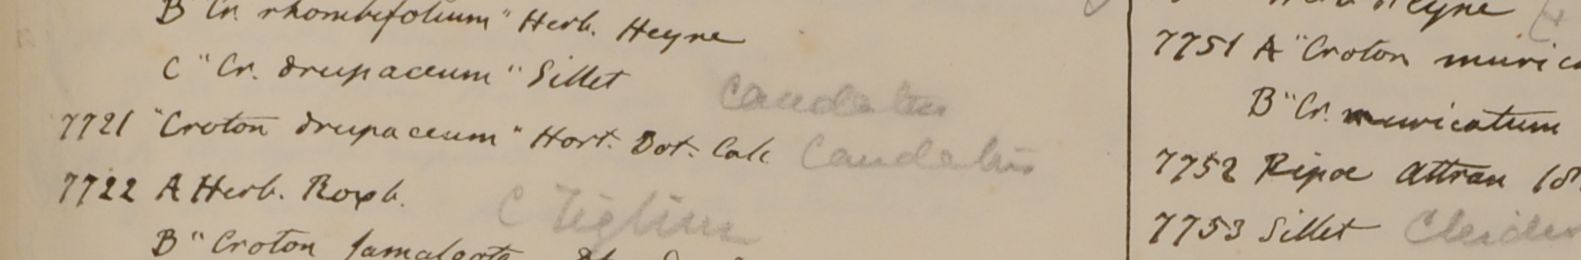 B "Cr. rhombifolium" Herb. Heyne
C "Cr. drupaceum" Sillet caudatus
7721 "Croton drupaceum" Hort. Bot. Calc caudatus
7722 A Herb. Roxb. C Tiglium
B "Croton Jamalgota
Heyne
7751 A "Croton muric
B "Cr. muricatum
7752 Ripoe Attran
7753 Sillet Cleidi